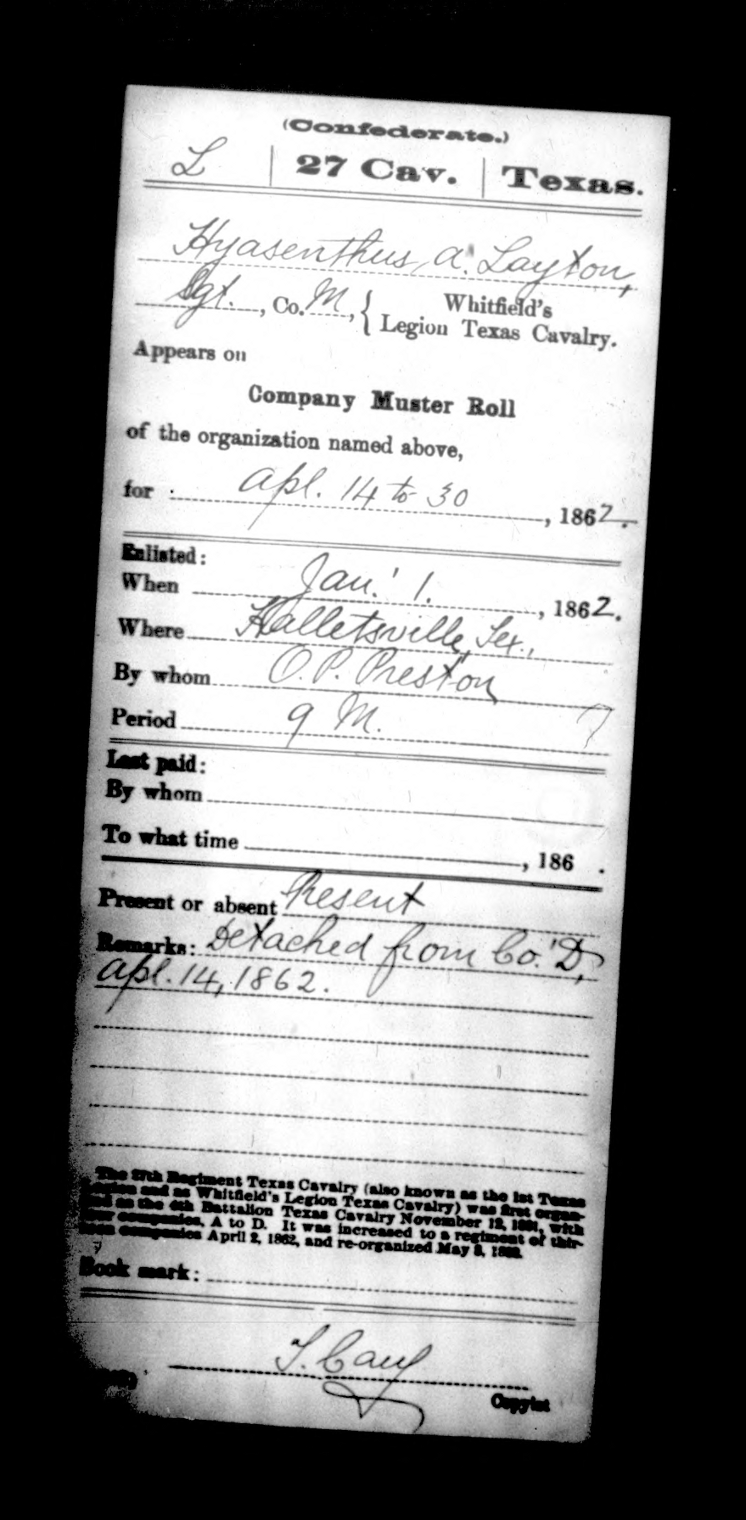 (Confederate.)
L | 27 Cav. | Texas.
Hyasenthus A. Layton,
Sgt., Co. M, { Whitfield's
Legion Texas Cavalry.
Appears on
Company Muster Roll
of the organization named above,
for Apl. 14 to 30, 1862.
Enlisted:
When Jan. 1., 1862.
Where Halletsville, Tex.,
By whom O. P. Preston
Period 9 M. 7
Last paid:
By whom
To what time , 186 .
Present or absent Present
Remarks: Detached from Co. D,
Apl. 14, 1862.
The 27th Regiment Texas Cavalry (also known as the 1st Texas
Legion and as Whitfield's Legion Texas Cavalry) was first organ-
ized as the 4th Battalion Texas Cavalry November 12, 1861, with
four companies, A to D. It was increased to a regiment of thir-
teen companies April 2, 1862, and re-organized May 8, 1862.
Book mark:
Copyist